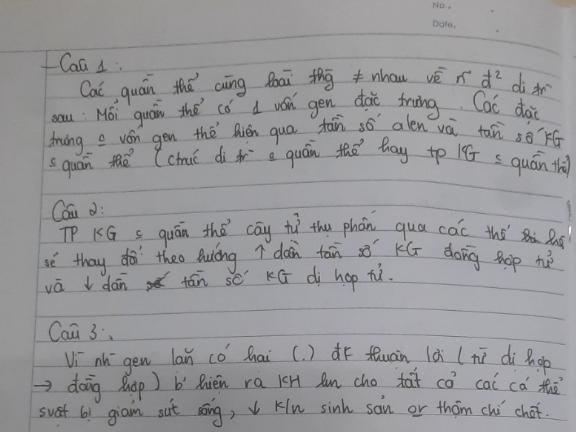 No.
Date.
Câu 1:
Các quần thể cùng loài thg ≠ nhau về n~ đ² di tr
sau: Mỗi quần thể có 1 vốn gen đặc trưng. Các đặc
trưng c vốn gen thể hiện qua tần số alen và tần số KG
c quần thể (ctrúc di tr c quần thể hay tp KG c quần thể)
Câu 2:
TP KG c quần thể cây tự thụ phấn qua các thế hệ
sẽ thay đổi theo hướng ↑ dần tần số KG đồng hợp tử
và ↓ dần tần số KG dị hợp tử.
Câu 3:
Vì nh~ gen lặn có hại (.) đk thuận lợi (từ dị hợp
→ đồng hợp) b' hiện ra KH làm cho tất cả các cá thể
suốt bị giảm sút sống, ↓ k/n sinh sản or thậm chí chết.